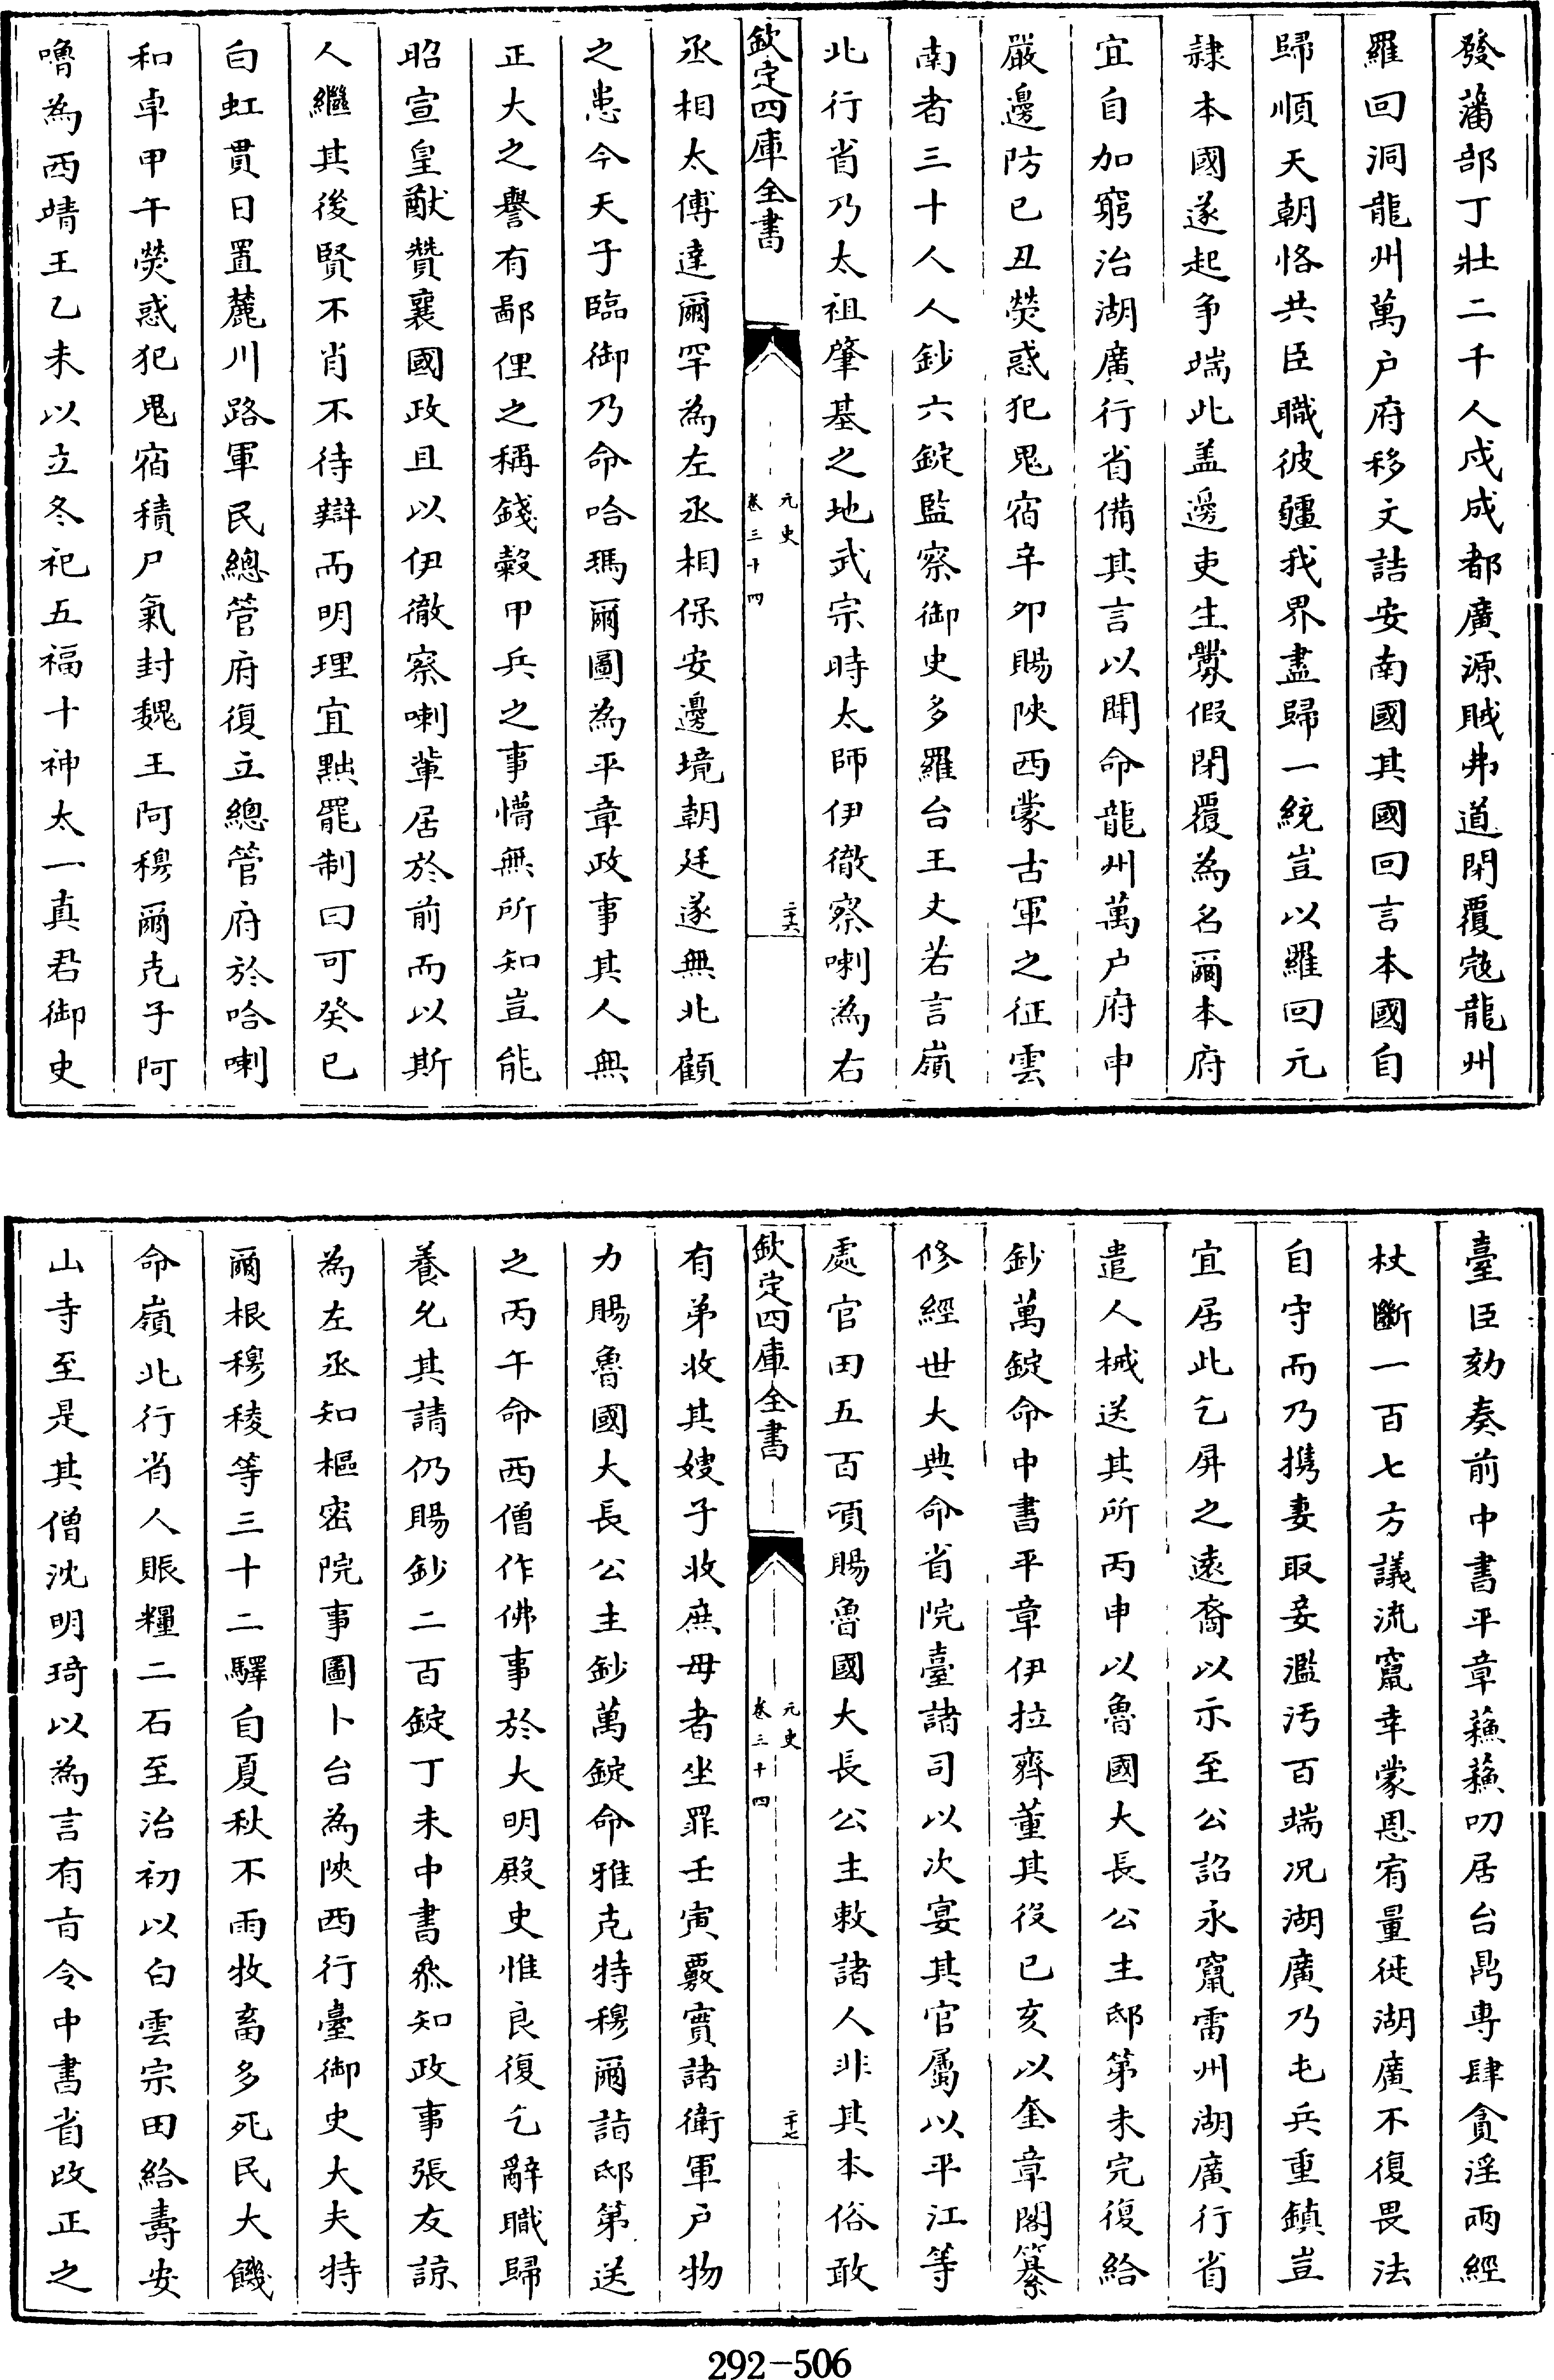 發藩部丁壯二千人戍成都廣源賊弗道閉覆冦龍州
羅回洞龍州萬户府移文詰安南國其國回言本國自
歸順天朝恪共臣職彼疆我界盡歸一統豈以羅回元
隷本國遂起争端此盖邊吏生釁假閉覆為名爾本府
宜自加窮治湖廣行省備其言以聞命龍州萬户府申
嚴邊防已丑熒惑犯鬼宿辛夘賜陜西蒙古軍之征雲
南者三十人人鈔六錠監察御史多羅台王丈若言嶺
北行省乃太祖肇基之地武宗時太師伊徹察喇為右
欽定四庫全書
元史
卷三十四
二十六
丞相太傅達爾罕為左丞相保安邊境朝廷遂無北顧
之患今天子臨御乃命哈瑪爾圖為平章政事其人無
正大之譽有鄙俚之稱錢穀甲兵之事懵無所知豈能
昭宣皇猷贊襄國政且以伊徹察喇輩居於前而以斯
人繼其後賢不肖不待辯而明理宜黜罷制曰可癸已
白虹貫日置麓川路軍民總管府復立總管府於哈喇
和卓甲午熒惑犯鬼宿積尸氣封魏王阿穆爾克子阿
嚕為西靖王乙未以立冬祀五福十神太一真君御史
臺臣劾奏前中書平章蘓蘓叨居台鼎専肆貪淫兩經
杖斷一百七方議流竄幸蒙恩宥量徙湖廣不復畏法
自守而乃携妻取妾濫汚百端况湖廣乃屯兵重鎮豈
宜居此乞屏之遠裔以示至公詔永竄雷州湖廣行省
遣人械送其所丙申以魯國大長公主邸第未完復給
鈔萬錠命中書平章伊拉齊董其役已亥以奎章閣纂
修經世大典命省院臺諸司以次宴其官屬以平江等
處官田五百頃賜魯國大長公主敕諸人非其本俗敢
欽定四庫全書
元史
卷三十四
二十七
有弟收其嫂子收庶母者坐罪壬寅覈實諸衛軍户物
力賜魯國大長公主鈔萬錠命雅克特穆爾詣邸第送
之丙午命西僧作佛事於大明殿史惟良復乞辭職歸
養允其請仍賜鈔二百錠丁未中書叅知政事張友諒
為左丞知樞密院事圖卜台為陜西行臺御史大夫特
爾根穆稜等三十二驛自夏秋不雨牧畜多死民大饑
命嶺北行省人賑糧二石至治初以白雲宗田給壽安
山寺至是其僧沈明琦以為言有㫖令中書省改正之
292-506